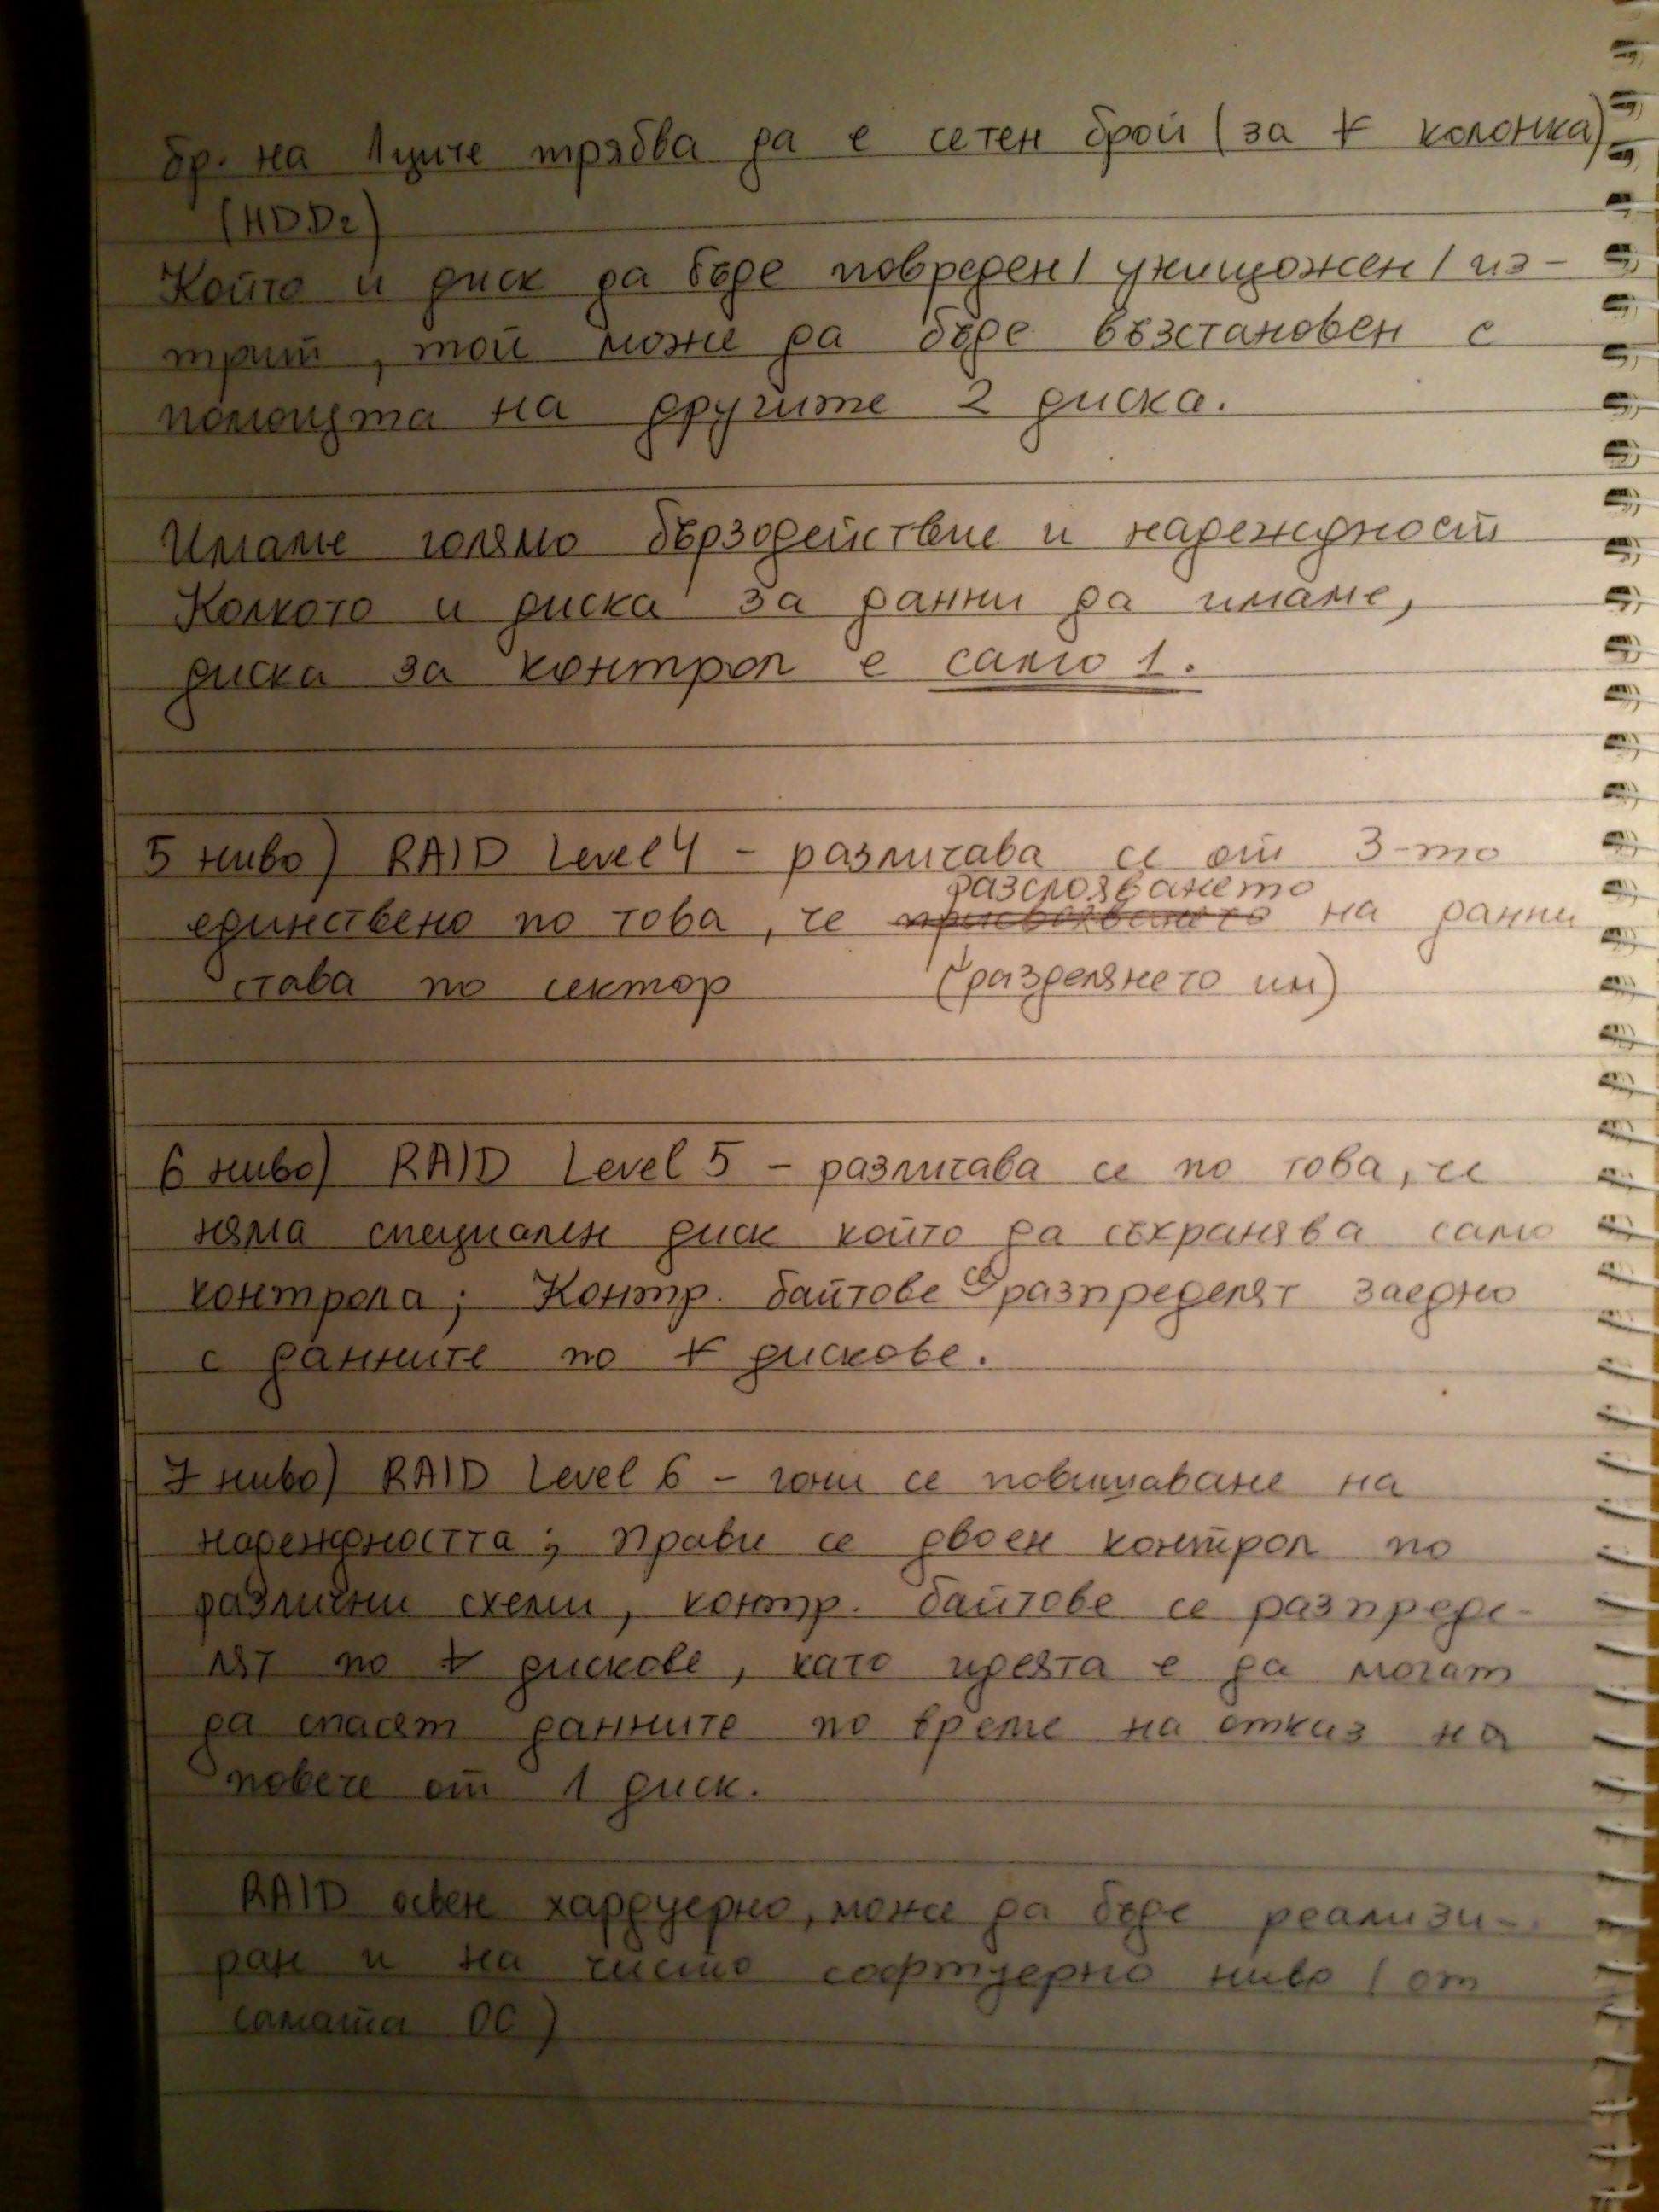 бр. на 1ците трябва да е четен брой (за ∀ колонка)
(HDD2)
Който и диск да бъде повреден/ унищожен/ из-
трит, той може да бъде възстановен с
помощта на другите 2 диска.
Имаме голямо бързодействие и надеждност
Колкото и диска за данни да имаме,
диска за контрол е само 1.
5 ниво) RAID Level 4 - различава се от 3-то
разслояването
единствено по това, че присвояването на данни
става по сектор (разделянето им)
6 ниво) RAID Level 5 - различава се по това, че
няма специален диск който да съхранява само
контрола; Контр. байтове се разпределят заедно
с данните по ∀ дискове.
7 ниво) RAID Level 6 - гони се повишаване на
надеждността; прави се двоен контрол по
различни схеми, контр. байтове се разпреде-
лят по ∀ дискове, като идеята е да могат
да спасят данните по време на отказ на
повече от 1 диск.
RAID освен хардуерно, може да бъде реализи-
ран и на чисто софтуерно ниво (от
самата ОС)